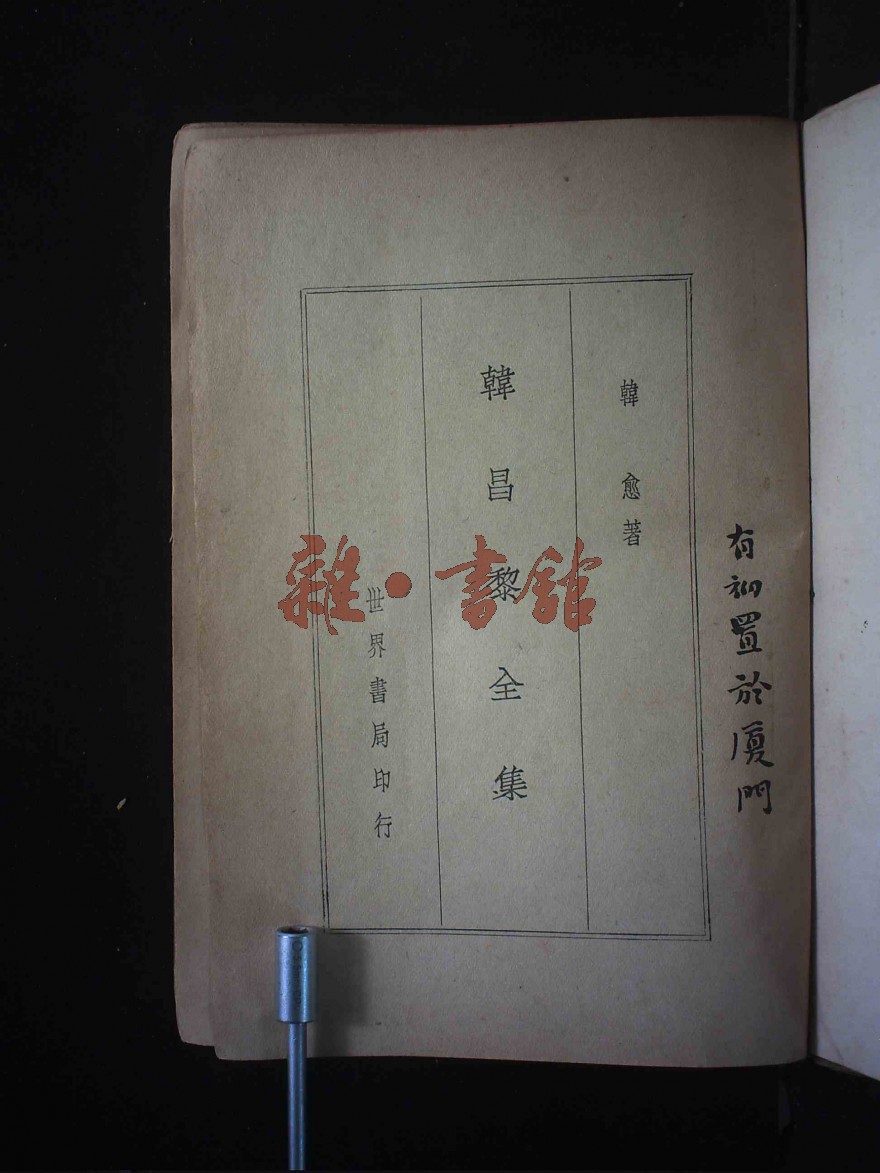 有初置於廈門
韓愈著
韓昌黎全集
世界書局印行
雜·書館